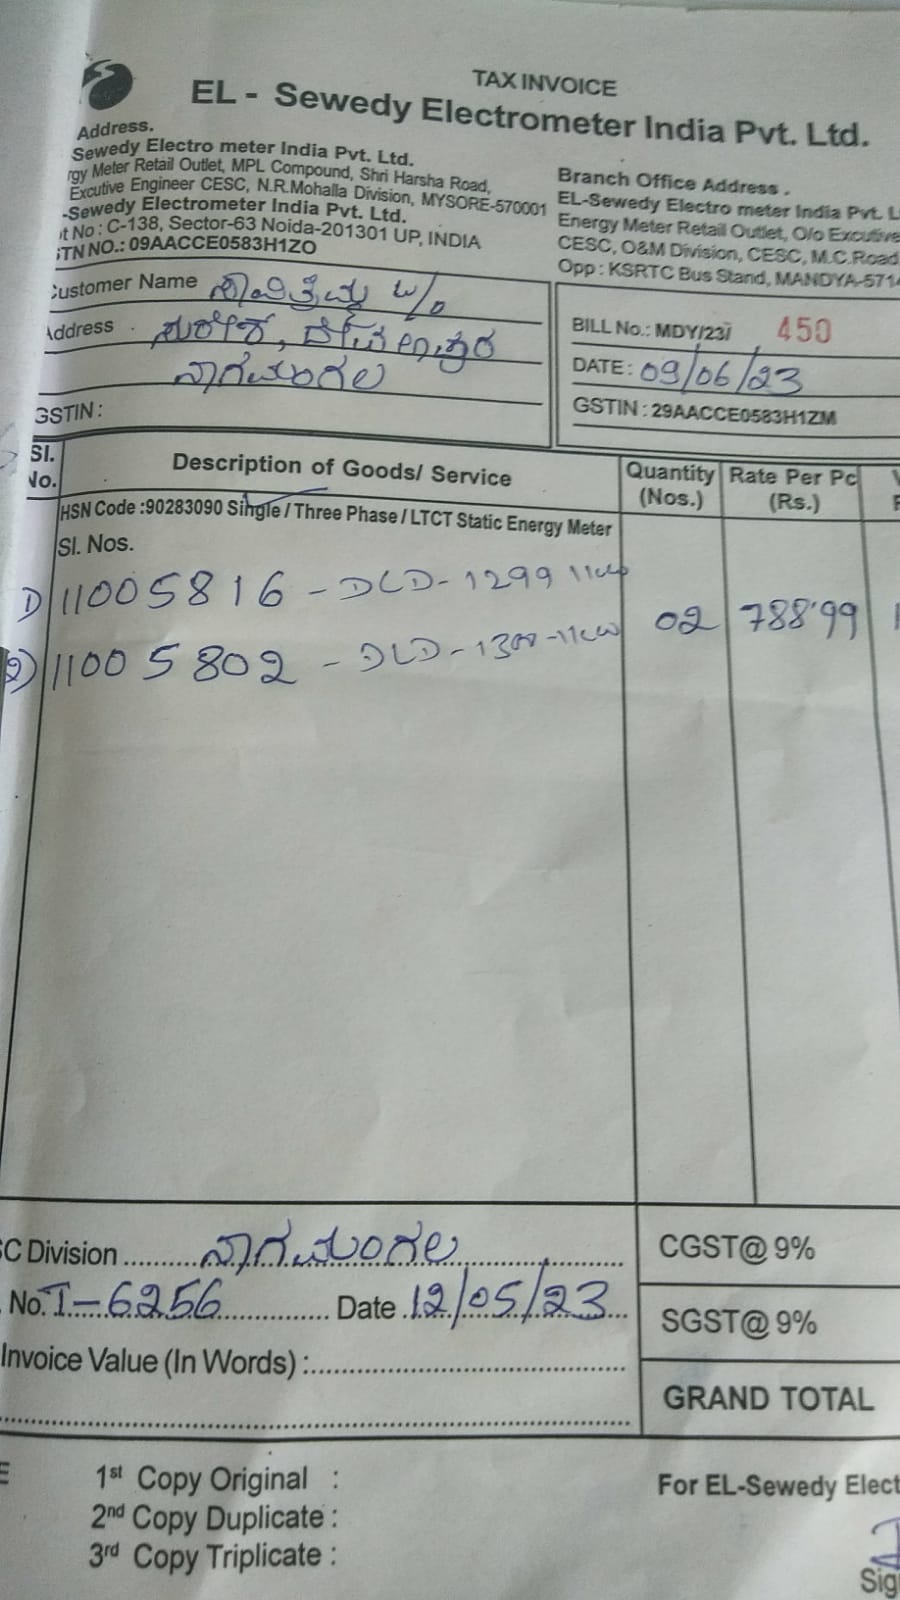 TAX INVOICE
EL - Sewedy Electrometer India Pvt. Ltd.
Address.
Sewedy Electro meter India Pvt. Ltd.
rgy Meter Retail Outlet, MPL Compound, Shri Harsha Road,
Excutive Engineer CESC, N.R.Mohalla Division, MYSORE-570001
-Sewedy Electrometer India Pvt. Ltd.
ot No : C-138, Sector-63 Noida-201301 UP, INDIA
STN NO.: 09AACCE0583H1ZO
Branch Office Address .
EL-Sewedy Electro meter India Pvt. L
Energy Meter Retail Outlet, O/o Excutive
CESC, O&M Division, CESC, M.C.Road
Opp : KSRTC Bus Stand, MANDYA-571
Customer Name ಸಾವಿತ್ರಮ್ಮ w/o
Address .
ನಾಗಮಂಗಲ
GSTIN :
BILL No.: MDY/23/ 450
DATE : 09/06/23
GSTIN : 29AACCE0583H1ZM
Sl. No. Description of Goods/ Service Quantity (Nos.) Rate Per Pc (Rs.)
HSN Code :90283090 Single / Three Phase / LTCT Static Energy Meter
Sl. Nos.
1) 11005816 - DLD-1299 11kw
2) 11005802 - DLD-1300-11kw 02 788.99
SC Division ನಾಗಮಂಗಲ
No. I-6256 Date 12/05/23
Invoice Value (In Words) :
CGST@ 9%
SGST@ 9%
GRAND TOTAL
1st Copy Original :
2nd Copy Duplicate :
3rd Copy Triplicate :
For EL-Sewedy Elect
Sig